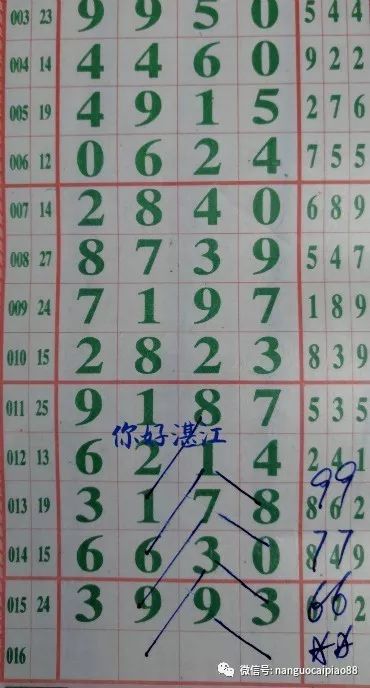 003 23 9 9 5 0 5 4 4
004 14 4 4 6 0 9 2 2
005 19 4 9 1 5 2 7 6
006 12 0 6 2 4 7 5 5
007 14 2 8 4 0 6 8 9
008 27 8 7 3 9 5 4 7
009 24 7 1 9 7 1 8 9
010 15 2 8 2 3 8 3 9
011 25 9 1 8 7 5 3 5
你好湛江
012 13 6 2 1 4 2 4 1
99
013 19 3 1 7 8 8 6 2
014 15 6 6 3 0 8 4 9
77
015 24 3 9 9 3 6 2
66
016
微信号: nanguocaipiao88